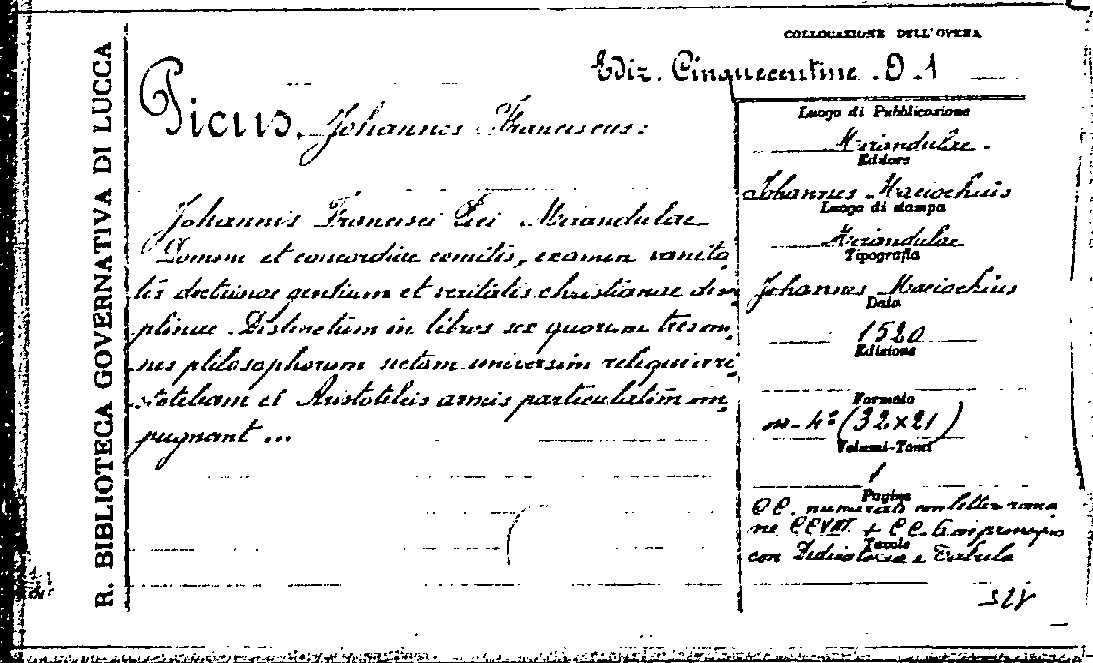 R. BIBLIOTECA GOVERNATIVA DI LUCCA
COLLOCAZIONE DELL'OPERA
Ediz. Cinquecentine . D. 1
Picus, Johannes Franciscus:
Johannis Francisci Pici Mirandulae
Domini et concordiae comitis, examen vanita
tis doctrinae gentium et veritatis christianae disci
plinae. Distinctum in libros sex quorum tres om
nes philosophorum sectam universim reliqui Ari
stoteleam et Aristoteleis armis particulatim im
pugnant ...
Luogo di Pubblicazione
Mirandulae.
Editore
Johannes Maciochius
Luogo di stampa
Mirandulae
Tipografia
Johannes Maciochius
Data
1520
Edizione
Formato
in-4° (32x21)
Volumi-Tomi
1
Pagine
CC. numerate con lettere roma
ne CCVIII + CC. 6 in principio
Tavole
con Dedicatoria e Tabula